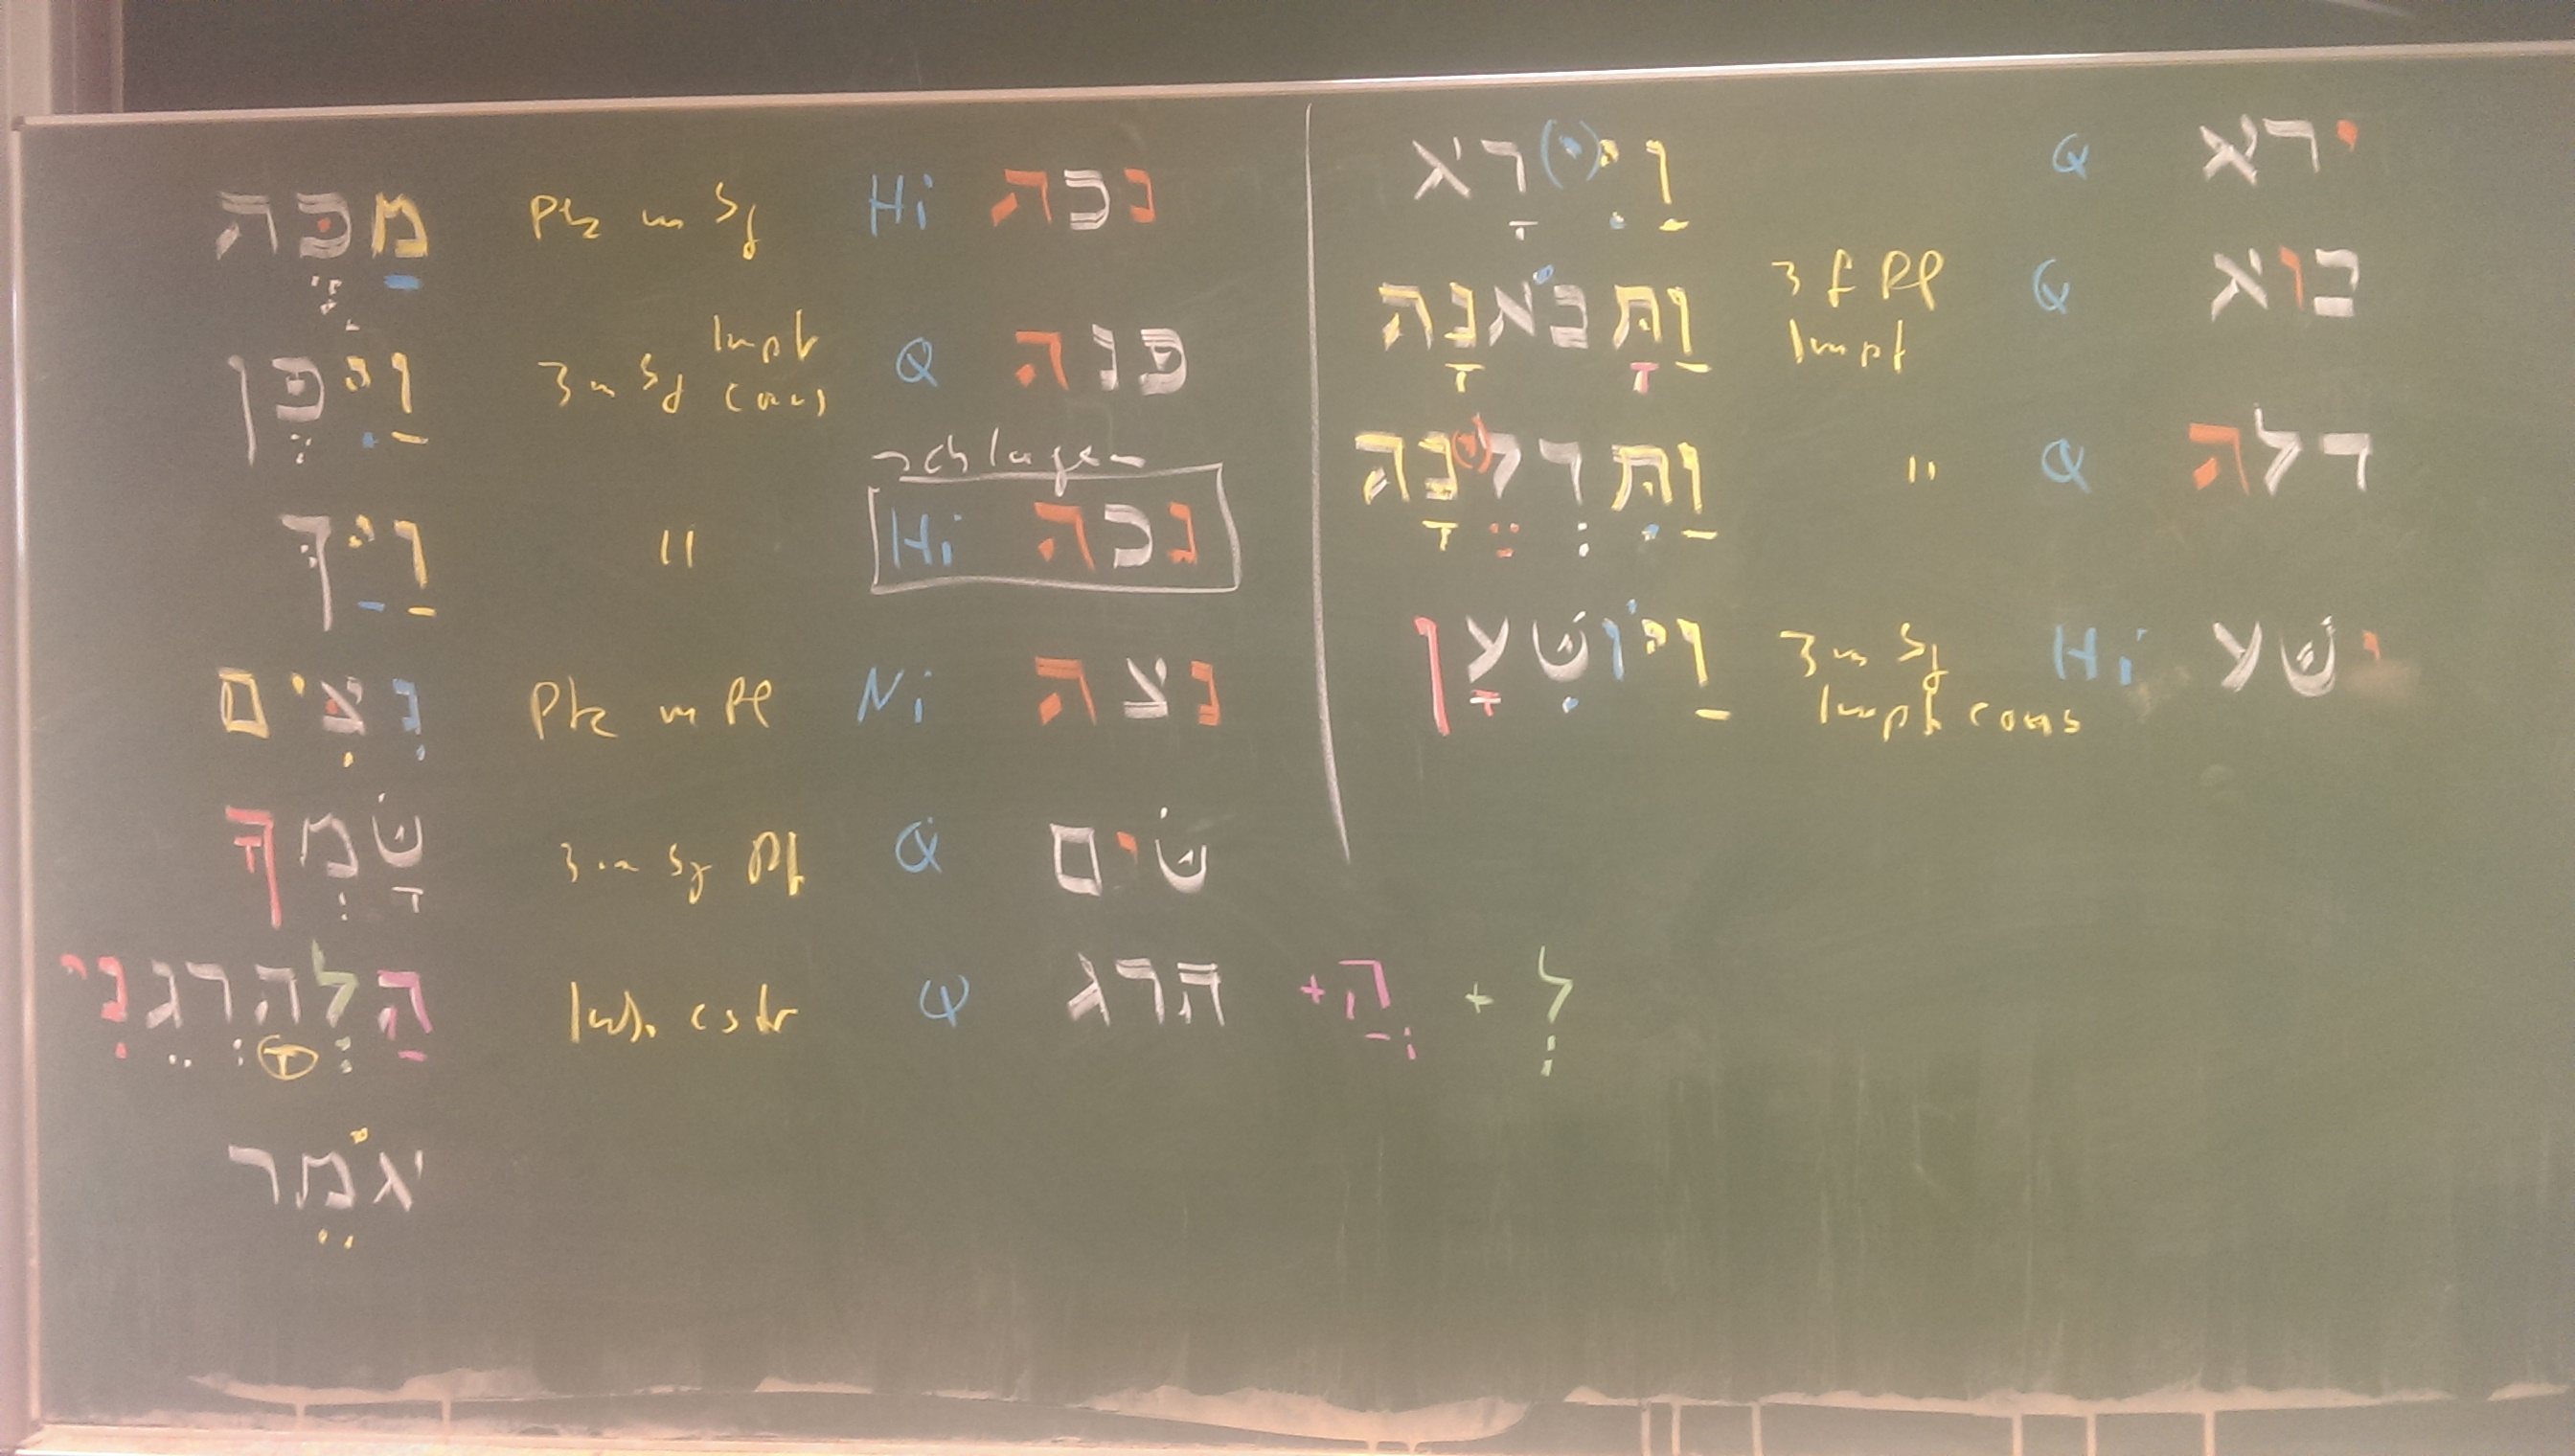 מַכֶּה Ptz m Sg Hi נכה
וַיִּפֶן 3 m Sg Impf cons Q פנה
schlagen
וַיַּךְ " Hi נכה
נִצִּים Ptz m Pl Ni נצה
שָׂמְךָ 3 m Sg Pf Q שׂים
הַלְהָרְגֵנִי Inf. cstr Q הרג + הַ + לְ
יאֹמֵר
וַיִּ(י)רָא Q ירא
וַתָּבֹאנָה 3 f Pl Impf Q בוא
וַתִּדְלֶ(י)נָה " Q דלה
וַיּוֹשִׁעָן 3 m Sg Impf cons Hi ישׁע